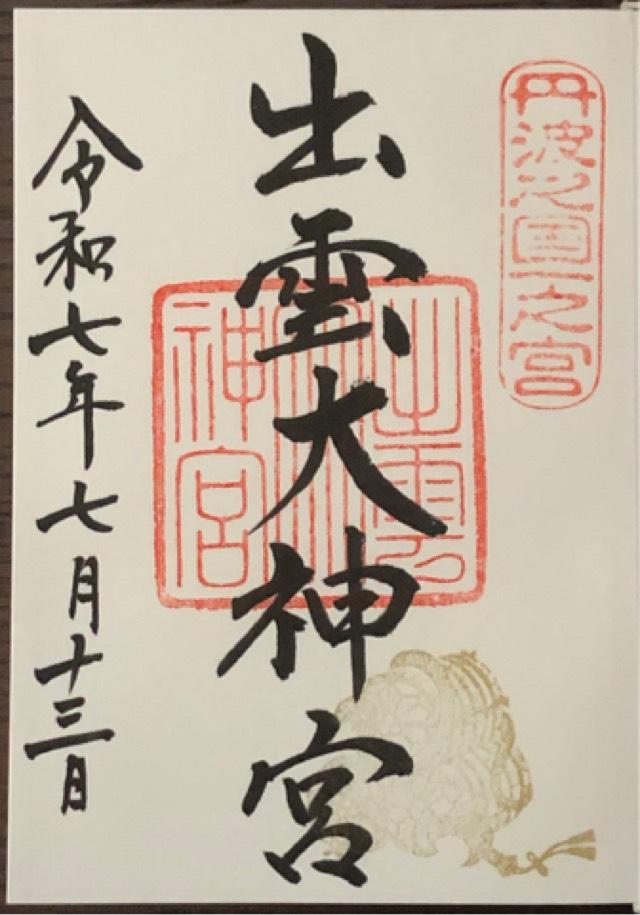 丹波之國一之宮
出雲大神宮
出雲大神宮
令和七年七月十三日